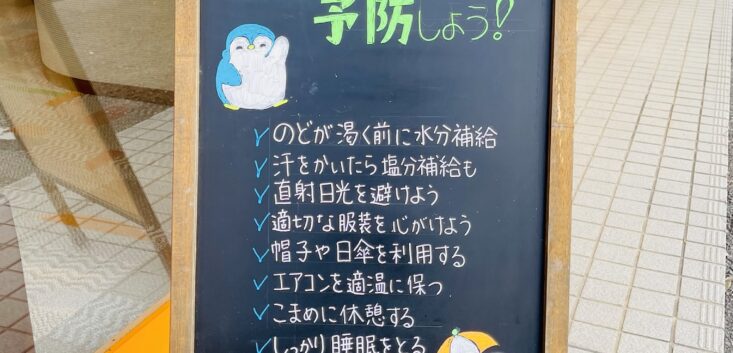 予防しよう!
のどが渇く前に水分補給
汗をかいたら塩分補給も
直射日光を避けよう
適切な服装を心がけよう
帽子や日傘を利用する
エアコンを適温に保つ
こまめに休憩する
しっかり睡眠をとる